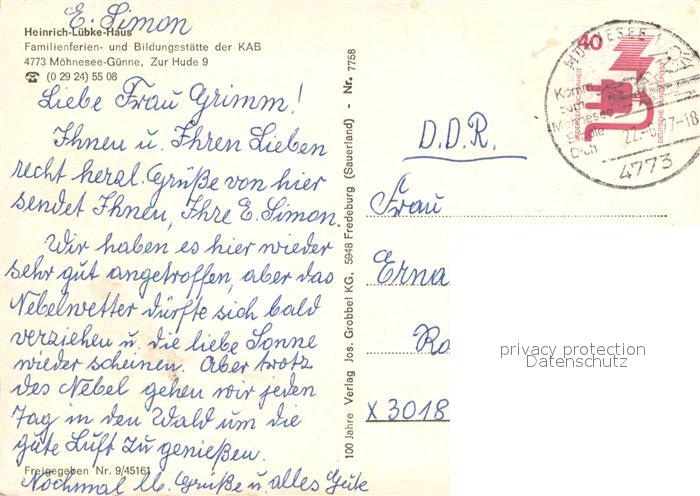 E. Simon
Heinrich-Lübke-Haus
Familienferien- und Bildungsstätte der KAB
4773 Möhnesee-Günne, Zur Hude 9
☎ (0 29 24) 55 08
Liebe Frau Grimm!
Ihnen u. Ihren Lieben
recht herzl. Grüße von hier
sendet Ihnen, Ihre E. Simon.
Wir haben es hier wieder
sehr gut angetroffen, aber das
Nebelwetter dürfte sich bald
verziehen u. die liebe Sonne
wieder scheinen. Aber trotz
des Nebel gehen wir jeden
Tag in den Wald um die
gute Luft zu genießen.
Freigegeben Nr. 9/45161
Nochmal lb. Grüße u. alles Gute
100 Jahre Verlag Jos. Grobbel KG, 5948 Fredeburg (Sauerland) - Nr. 7758
D.D.R.
Frau
Erna
X 3018
40
DEUTSCHE BUNDESPOST
MÖHNESEE 1
Komm
zum
Möhnesee
Dich
4773
privacy protection
Datenschutz